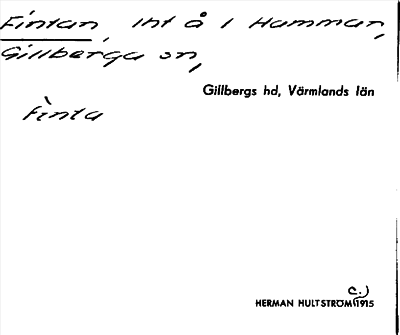 Fintan, Int å i Hammar,
Gillberga sn,
Gillbergs hd, Värmlands län
Fìnta
c.)
HERMAN HULTSTRÖM 1915